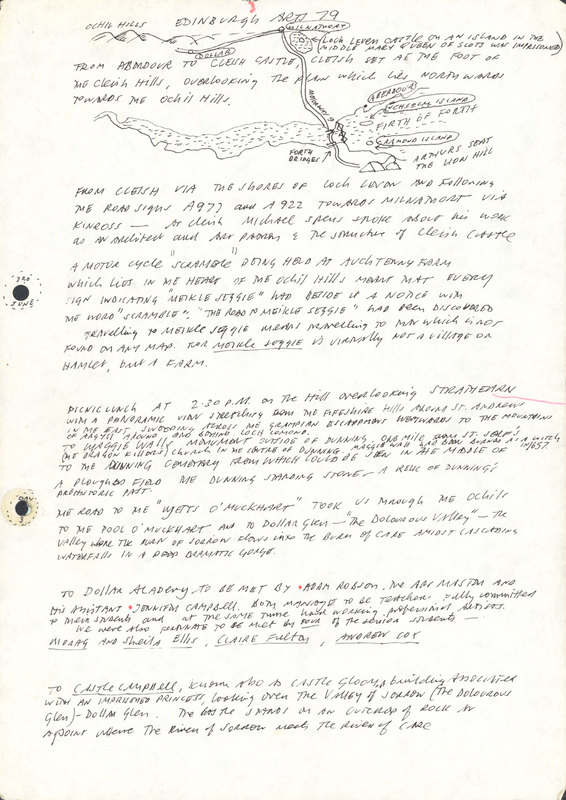 OCHIL HILLS EDINBURGH ARTS 79
MILNATHORT
LOCH LEVEN CASTLE ON AN ISLAND IN THE
MIDDLE MARY QUEEN OF SCOTS WAS IMPRISONED
DOLLAR
FROM ABERDOUR TO CLEISH CASTLE, CLEISH SET AT THE FOOT OF
THE CLEISH HILLS, OVERLOOKING THE PLAIN WHICH LIES NORTHWARDS
TOWARDS THE OCHIL HILLS.
MOTORWAY 9
ABERDOUR
INCHCOLM ISLAND
FIRTH OF FORTH
CRAMOND ISLAND
FORTH
BRIDGES
ARTHURS SEAT
THE LION HILL
FROM CLEISH VIA THE SHORES OF LOCH LEVEN AND FOLLOWING
THE ROAD SIGNS A977 AND A922 TOWARDS MILNATHORT VIA
KINROSS — AT CLEISH MICHAEL SPENS SPOKE ABOUT HIS WORK
AS AN ARCHITECT AND ART PATRON & THE STRUCTURE OF CLEISH CASTLE
A MOTOR CYCLE "SCRAMBLE" BEING HELD AT AUCHTENNY FARM
WHICH LIES IN THE HEART OF THE OCHIL HILLS MEANT THAT EVERY
SIGN INDICATING "MEIKLE SEGGIE" HAD BESIDE IT A NOTICE WITH
THE WORD "SCRAMBLE". "THE ROAD TO MEIKLE SEGGIE" HAD BEEN DISCOVERED
TRAVELLING TO MEIKLE SEGGIE MEANS TRAVELLING TO THAT WHICH IS NOT
FOUND ON ANY MAP. FOR MEIKLE SEGGIE IS VIRTUALLY NOT A VILLAGE OR
HAMLET, BUT A FARM.
3RD
JUNE
PICNIC LUNCH AT 2:30 P.M. ON THE HILL OVERLOOKING STRATHEARN
WITH A PANORAMIC VIEW STRETCHING FROM THE FIFESHIRE HILLS AROUND ST. ANDREWS
IN THE EAST, SWEEPING ACROSS THE GRAMPIAN ESCARPMENT WESTWARDS TO THE MOUNTAINS
OF ARGYLL AROUND AND BEHIND LOCH LOMOND
TO "MAGGIE WALL'S" MONUMENT OUTSIDE OF DUNNING, ONE MILE FROM ST. SERF'S
(THE DRAGON KILLER'S) CHURCH IN THE CENTRE OF DUNNING. MAGGIE WALL HAD BEEN BURNED AS A WITCH
IN 1657
TO THE DUNNING CEMETERY FROM WHICH COULD BE SEEN IN THE MIDDLE OF
A PLOUGHED FIELD THE DUNNING STANDING STONE — A RELIC OF DUNNING'S
PREHISTORIC PAST.
DAY
3
THE ROAD TO THE "YETTS O'MUCKHART" TOOK US THROUGH THE OCHILS
TO THE POOL O'MUCKHART AND TO DOLLAR GLEN — "THE DOLOUROUS VALLEY" — THE
VALLEY WHERE THE BURN OF SORROW FLOWS INTO THE BURN OF CARE AMIDST CASCADING
WATERFALLS IN A DEEP DRAMATIC GORGE.
TO DOLLAR ACADEMY TO BE MET BY ADAM ROBSON. THE ART MASTER AND
HIS ASSISTANT JENNIFER CAMPBELL. BOTH MANAGE TO BE TEACHERS FULLY COMMITTED
TO THEIR STUDENTS AND AT THE SAME TIME HARD WORKING PROFESSIONAL ARTISTS.
WE WERE ALSO FORTUNATE TO BE MET BY FOUR OF THE SENIOR STUDENTS —
MORAG AND SHEILA ELLIS, CLAIRE FULTON, ANDREW COX
TO CASTLE CAMPBELL, KNOWN ALSO AS CASTLE GLOOM, A BUILDING ASSOCIATED
WITH AN IMPRISONED PRINCESS, LOOKING OVER THE VALLEY OF SORROW (THE DOLOUROUS
GLEN) — DOLLAR GLEN. THE CASTLE STANDS ON AN OUTCROP OF ROCK AT
A POINT WHERE THE RIVER OF SORROW MEETS THE RIVER OF CARE